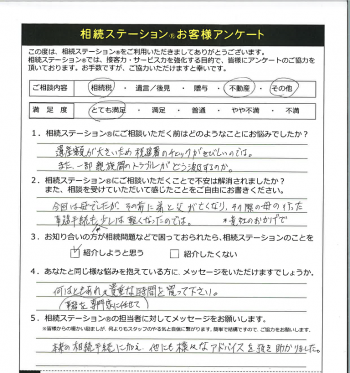 相続ステーション®お客様アンケート
この度は、相続ステーション®をご利用いただきましてありがとうございます。
相続ステーション®では、接客力・サービス力を強化する目的で、皆様にアンケートのご協力を
頂いております。お手数ですが、ご協力いただけますと幸いです。
ご相談内容 相続税 ・ 遺言/後見 ・ 贈与 ・ 不動産 ・ その他
満足度 とても満足 ・ 満足 ・ 普通 ・ やや不満 ・ 不満
1．相続ステーション®にご相談いただく前はどのようなことにお悩みでしたか？
遺産額が大きいため税務署のチェックがきびしいのでは。
また一部親族間のトラブルがどう波及するのか。
2．相続ステーション®にご相談いただくことで不安は解消されましたか？
また、相談を受けていただいて感じたことをご自由にお書きください。
今回は母でしたが、その前に弟と父が亡くなり、その際の母の
事務手続も少しは軽くなったのでは。 *貴社のおかげで
3．お知り合いの方が相続問題などで困っておられたら、相続ステーション®のことを
紹介しようと思う □紹介したくない
4．あなたと同じ様な悩みを抱えている方に、メッセージをいただけますでしょうか。
何はともあれ貴重な時間を買って下さい。
（税務を専門家に任せて）
5．相続ステーション®の担当者に対してメッセージをお願いします。
※皆様からの暖かい励ましが、何よりもスタッフのやる気と自信に繋がります。簡単で結構ですので、ご協力をお願いします。
様の相続手続に加え 他にも様々なアドバイスを頂き助かりました。